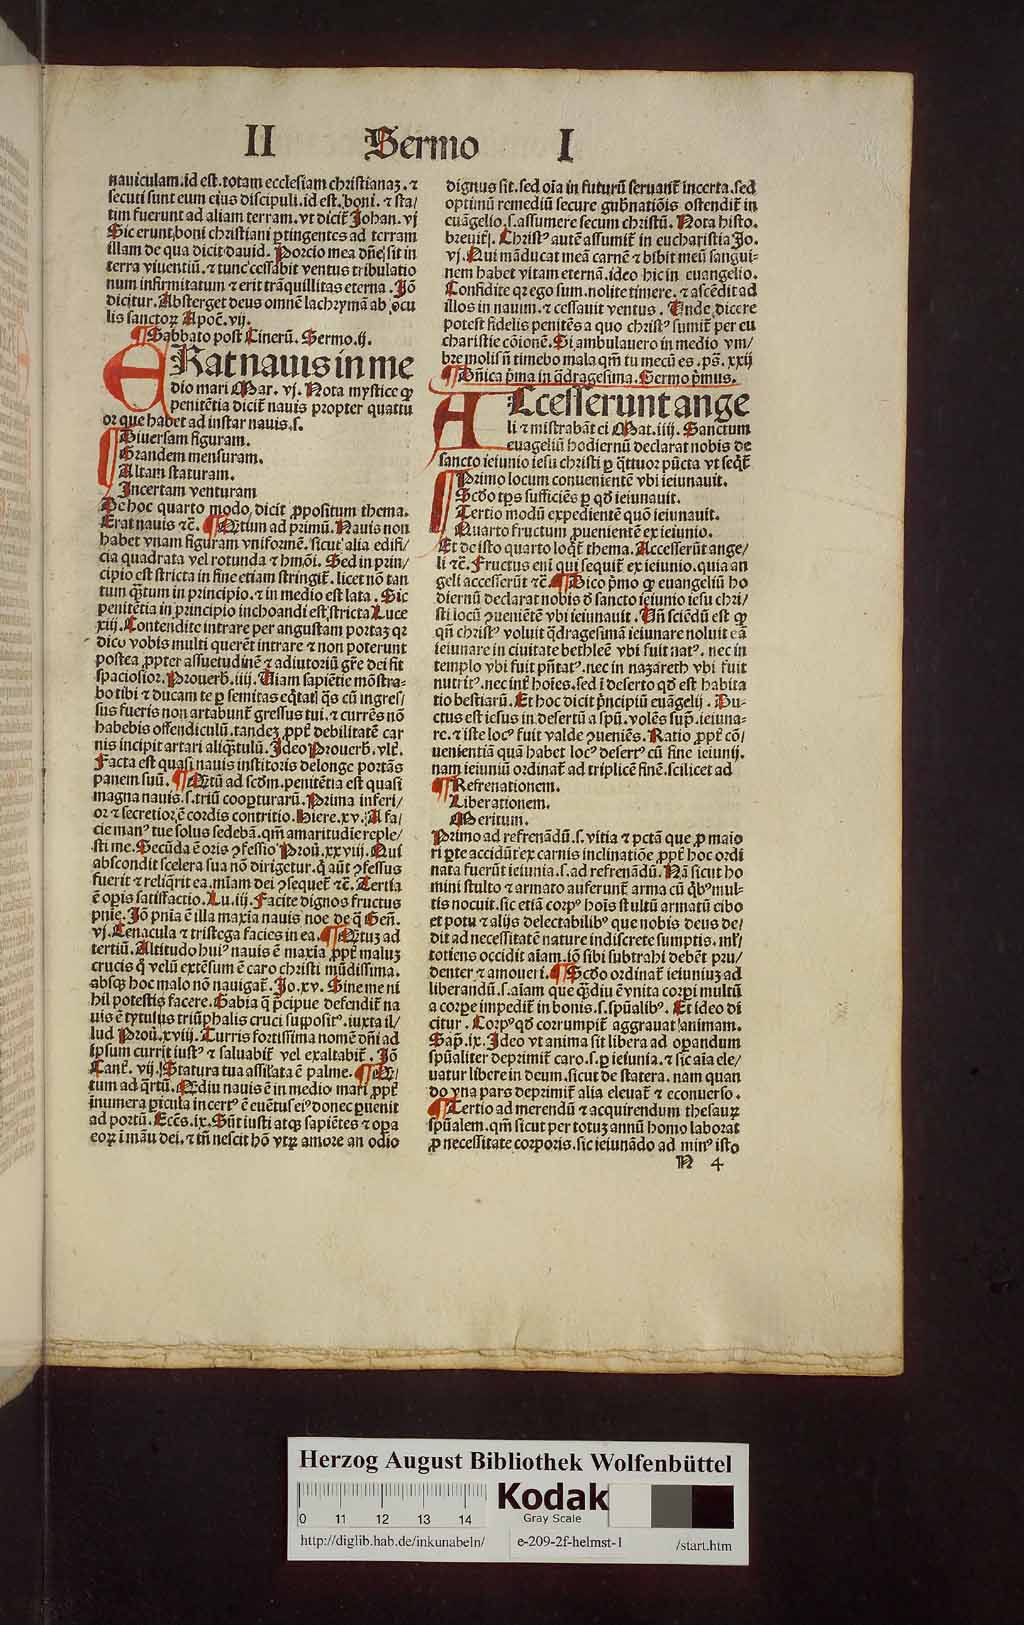 II Sermo I
nauiculam.id est.totam ecclesiam christianaꝫ.⁊
secuti sunt eum eius discipuli.id est.boni.⁊ sta/
tim fuerunt ad aliam terram.vt dicit᷑ Johan.vj
Sic erunt boni christiani ꝑtingentes ad terram
illam de qua dicit dauid. Porcio mea dñe sit in
terra viuentiū.⁊ tunc cessabit ventus tribulatio
num infirmitatum ⁊ erit trāquillitas eterna. Jō
dicitur. Absterget deus omnē lachrymā ab ocu
lis sanctoꝝ Apoc̄.vij.
¶ Sabbato post Cinerū. Sermo.ij.
ERat nauis in me
dio mari Mar. vj. Nota mystice ꝙ
penitētia dicit᷑ nauis propter quattu
or que habet ad instar nauis.s.
Diuersam figuram.
Grandem mensuram.
Altam staturam.
Incertam venturam
De hoc quarto modo dicit ꝓpositum thema.
Erat nauis ⁊c̄. ¶ Qr̄tum ad primū. Nauis non
habet vnam figuram vniformē.sicut alia edifi/
cia quadrata vel rotunda ⁊ hmōi. Sed in prin/
cipio est stricta in fine etiam stringit᷑.licet nō tan
tum q̄tum in principio.⁊ in medio est lata. Sic
penitētia in principio inchoandi est stricta Luce
xiij. Contendite intrare per angustam portaꝫ qꝛ
dico vobis multi querēt intrare ⁊ non poterunt
postea ꝓpter assuetudinē ⁊ adiutoriū gr̄e dei fit
spaciosior. Prouerb̄.iiij. Uiam sapiētie mōstra/
bo tibi ⁊ ducam te ꝑ semitas eq̄tatꝭ q̄s cū ingres/
sus fueris non artabunt᷑ gressus tui.⁊ currēs nō
habebis offendiculū.tandeꝫ ꝓpt᷑ debilitatē car
nis incipit artari aliq̄tulū. Ideo Prouerb̄.vlt᷑.
Facta est quasi nauis institoris delonge portās
panem suū. ¶ Qr̄tū ad scd̄m.penitētia est quasi
magna nauis.s.triū cooꝑturarū. Prima inferi/
or ⁊ secretior ē cordis contritio. Hiere.xv. A fa/
cie manꝰ tue solus sedebā.qm̄ amaritudīe reple/
sti me. Secūda ē oris ꝯfessio Proū.xxviij. Qui
abscondit scelera sua nō dirigetur.q̄ aūt ꝯfessus
fuerit ⁊ reliq̄rit ea.mīam dei ꝯsequet᷑ ⁊c̄. Tertia
ē oꝑis satisfactio. Lu.iij. Facite dignos fructus
pnīe. Jō pnīa ē illa maxīa nauis noe de q̄ Gen̄.
vj. Cenacula ⁊ tristega facies in ea. ¶ Qr̄tuꝫ ad
tertiū. Altitudo huiꝰ nauis ē maxīa ꝓpt᷑ maluꝫ
crucis q̄ velū extēsum ē caro christi mūdissima.
absqꝫ hoc malo nō nauigat᷑. Jo.xv. Sine me ni
hil potestis facere. Gabia q̄ p̄cipue defendit᷑ na
uis ē tytulus triūphalis cruci suꝑpositꝰ.iuxta il/
lud Proū.xviij. Turris fortissima nomē dn̄i ad
ip̄sum currit iustꝰ ⁊ saluabit᷑ vel exaltabit᷑. Jō
Cant᷑. vij. Statura tua assi͞lata ē palme. ¶ Qr̄
tum ad q̄rtū. Qr̄diu nauis ē in medio mari ꝓpt᷑
īnumera ꝑicula incertꝰ ē euētus eiꝰ donec ꝑuenit
ad portū. Ecc̄s.ix. Sūt iusti atqꝫ sapiētes ⁊ oꝑa
eoꝝ ī māu dei.⁊ tn̄ nescit hō vtꝝ amore an odio
dignus sit.sed oīa in futurū seruant᷑ incerta.sed
optimū remediū secure gub̄natiōis ostendit᷑ in
euāgelio.s.assumere secum christū. Nota histo.
breuit᷑. Christꝰ autē assumit᷑ in eucharistia Jo.
vj. Qui māducat meā carnē ⁊ bibit meū sangui-
nem habet vitam eternā.ideo hic in euangelio.
Confidite qꝛ ego sum.nolite timere.⁊ ascēdit ad
illos in nauim.⁊ cessauit ventus. Unde dicere
potest fidelis penitēs a quo christꝰ sumit᷑ per eu
charistie cōionē. Si ambulauero in medio vm/
bre mortis nō timebo mala qm̄ tu mecū es.ps̄.xxij
¶ Dn̄ica p̄ma in q̄dragesima. Sermo p̄mus.
ACcesserunt ange
li ⁊ mīstrabāt ei Mat.iiij. Sanctum
euageliū hodiernū declarat nobis de
sancto ieiunio iesu christi ꝑ q̄ttuor pūcta vt seq̄t᷑
Primo locum conuenientē vbi ieiunauit.
Scd̄o tp̄s sufficiēs ꝑ qd̄ ieiunauit.
Tertio modū expedientē quō ieiunauit.
Quarto fructum ꝓuenientē ex ieiunio.
Et de isto quarto loq̄t᷑ thema. Accesserūt ange/
li ⁊c̄. Fructus eni qui sequit᷑ ex ieiunio.quia an
geli accesserūt ⁊c̄. ¶ Dico p̄mo ꝙ euangeliū ho
diernū declarat nobis d̄ sancto ieiunio iesu chri/
sti locū ꝯueniētē vbi ieiunauit. Un̄ sciēdū est ꝙ
qn̄ christꝰ voluit q̄dragesimā ieiunare noluit eā
ieiunare in ciuitate bethleē vbi fuit natꝰ.nec in
templo vbi fuit pn̄tatꝰ.nec in nazareth vbi fuit
nutritꝰ.nec int᷑ hoīes.sed ī deserto qd̄ est habita
tio bestiarū. Et hoc dicit p̄ncipiū euāgelij. Du-
ctus est iesus in desertū a spū.volēs sup̄.ieiuna-
re.⁊ iste locꝰ fuit valde ꝯueniēs. Ratio ꝓpt᷑ cō/
uenientiā quā habet locꝰ desertꝰ cū fine ieiunij.
nam ieiuniū ordinat᷑ ad triplicē finē.scilicet ad
¶ Refrenationem.
Liberationem.
Meritum.
Primo ad refrenādū.s.vitia ⁊ pctā que ꝓ maio
ri ꝑte accidūt ex carnis inclinatiōe ꝓpt᷑ hoc ordi
nata fuerūt ieiunia.s.ad refrenādū. Nā sicut ho
mini stulto ⁊ armato auferunt᷑ arma cū q̄bꝰ mul-
tis nocuit.sic etiā corpꝰ hoīs stultū armatū cibo
et potu ⁊ alijs delectabilibꝰ que nobis deus de/
dit ad necessitatē nature indiscrete sumptis.ml̄/
totiens occidit aīam.iō sibi subtrahi debēt pru/
denter ⁊ amoueri. ¶ Scd̄o ordinat᷑ ieiuniuꝫ ad
liberandū.s.aīam que q̄diu ē vnita corpi multū
a corpe impedit᷑ in bonis.s.spūalibꝰ. Et ideo di
citur. Corpꝰ qd̄ corrumpit᷑ aggrauat animam.
Sap̄.ix. Ideo vt anima sit libera ad oꝑandum
spūaliter deprimit᷑ caro.s.ꝑ ieiunia.⁊ sic aīa ele/
uatur libere in deum.sicut de statera.nam quan
do vna pars deprimit᷑ alia eleuat᷑ ⁊ econuerso.
¶ Tertio ad merendū ⁊ acquirendum thesauꝝ
spūalem.qm̄ sicut per totuꝫ annū homo laborat
ꝓ necessitate corporis.sic ieiunādo ad minꝰ isto
N 4
Herzog August Bibliothek Wolfenbüttel
0 11 12 13 14
Kodak
Gray Scale
http://diglib.hab.de/inkunabeln/ e-209-2f-helmst-1 /start.htm